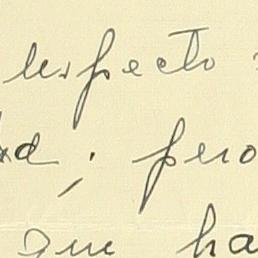 respecto
; pero
que ha